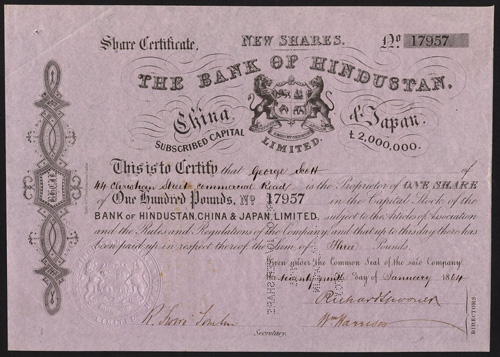 Share Certificate. NEW SHARES. No 17957
THE BANK OF HINDUSTAN,
China & Japan.
SUBSCRIBED CAPITAL LIMITED. £2,000,000.
This is to Certify that George Scott of
44 Street Commercial Road is the Proprietor of ONE SHARE
of One Hundred Pounds, No 17957 in the Capital Stock of the
BANK OF HINDUSTAN, CHINA & JAPAN, LIMITED, subject to the Articles of Association
and the Rules and Regulations of the Company and that up to this day there has
been paid up in respect thereof the Sum of Three Pounds.
Given under the Common Seal of the said Company
the twenty ninth day of January 1864
Richard Spooner
Wm Harrison
DIRECTORS
Secretary.